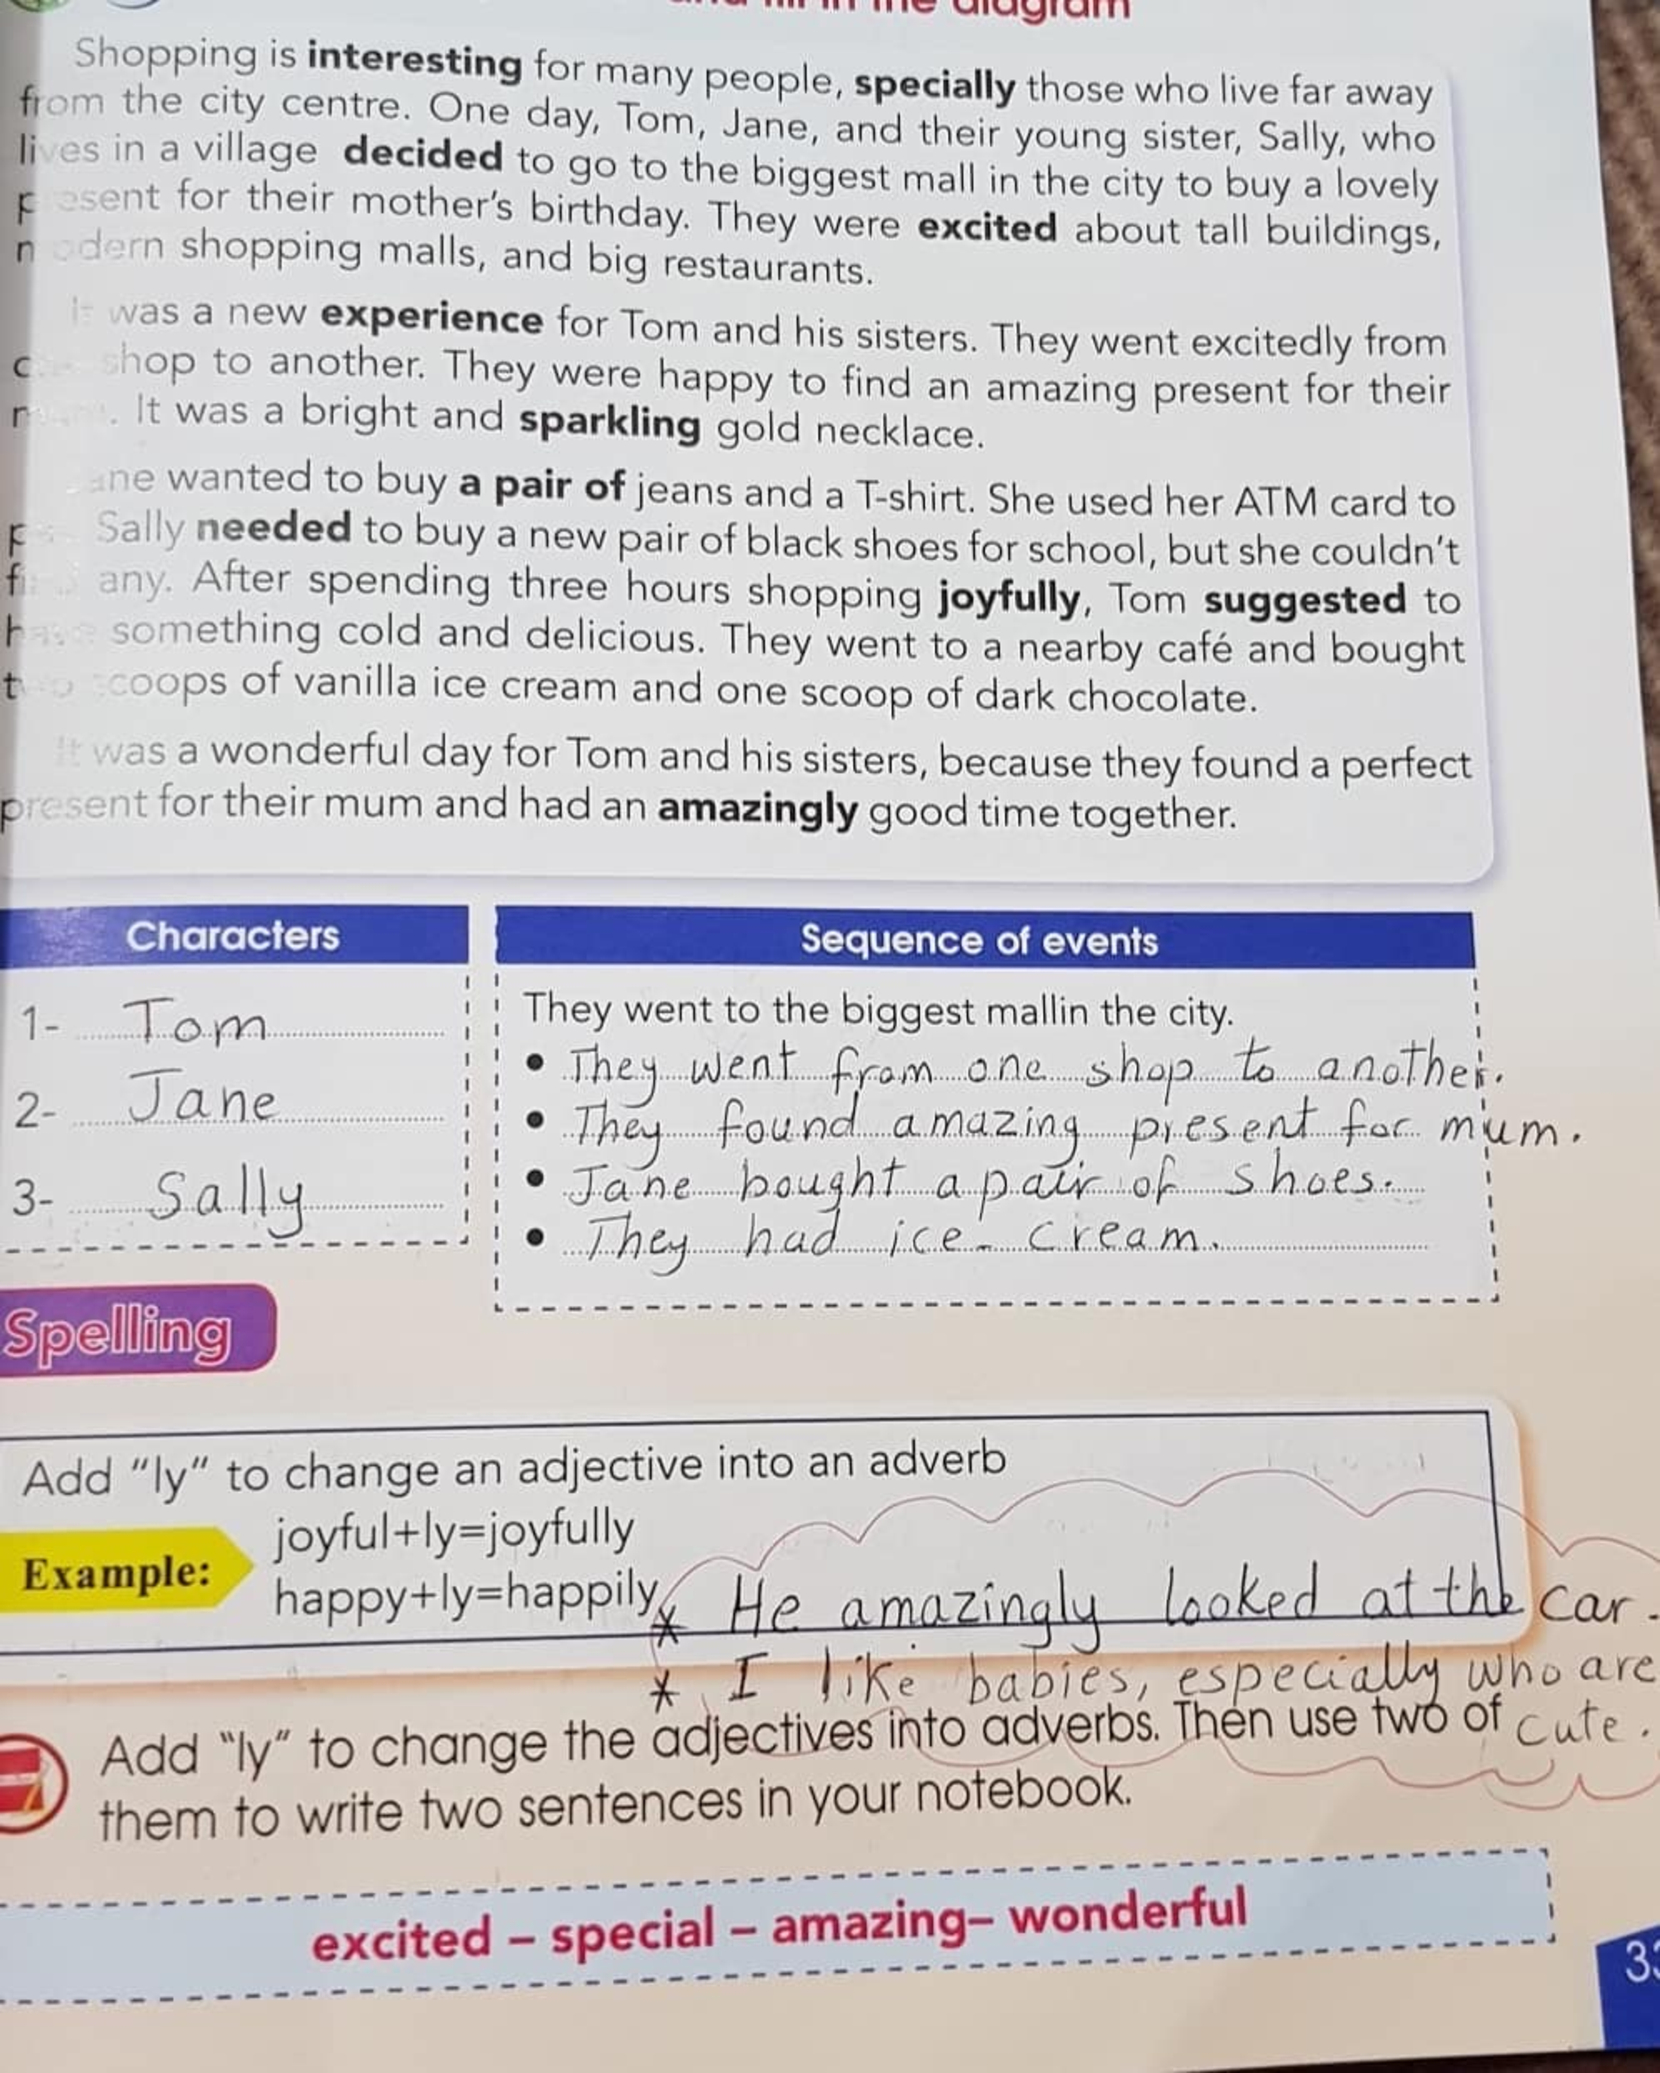 and fill in the diagram
Shopping is interesting for many people, specially those who live far away
from the city centre. One day, Tom, Jane, and their young sister, Sally, who
lives in a village decided to go to the biggest mall in the city to buy a lovely
present for their mother's birthday. They were excited about tall buildings,
modern shopping malls, and big restaurants.
It was a new experience for Tom and his sisters. They went excitedly from
shop to another. They were happy to find an amazing present for their
. It was a bright and sparkling gold necklace.
Jane wanted to buy a pair of jeans and a T-shirt. She used her ATM card to
Sally needed to buy a new pair of black shoes for school, but she couldn't
find any. After spending three hours shopping joyfully, Tom suggested to
have something cold and delicious. They went to a nearby café and bought
two scoops of vanilla ice cream and one scoop of dark chocolate.
It was a wonderful day for Tom and his sisters, because they found a perfect
present for their mum and had an amazingly good time together.
Characters
1- Tom
2- Jane
3- Sally
Sequence of events
They went to the biggest mallin the city.
• They went from one shop to another.
• They found amazing present for mum.
• Jane bought a pair of shoes.
• They had ice-cream.
Spelling
Add "ly" to change an adjective into an adverb
Example:
joyful+ly=joyfully
happy+ly=happily
* He amazingly looked at the car.
* I like babies, especially who are
cute.
Add "ly" to change the adjectives into adverbs. Then use two of
them to write two sentences in your notebook.
excited – special – amazing– wonderful